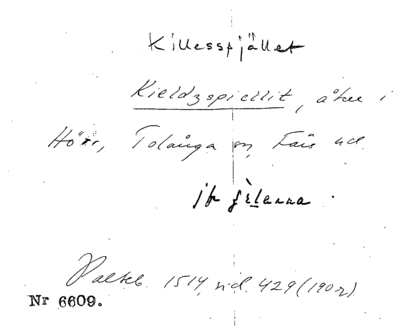 Killesspjället
Kieldzspiellit, åker i
Hörr, Tolånga sn, Färs hd.
jfr
Palteb. 1514, sid. 429 (190 r).
Nr 6609.